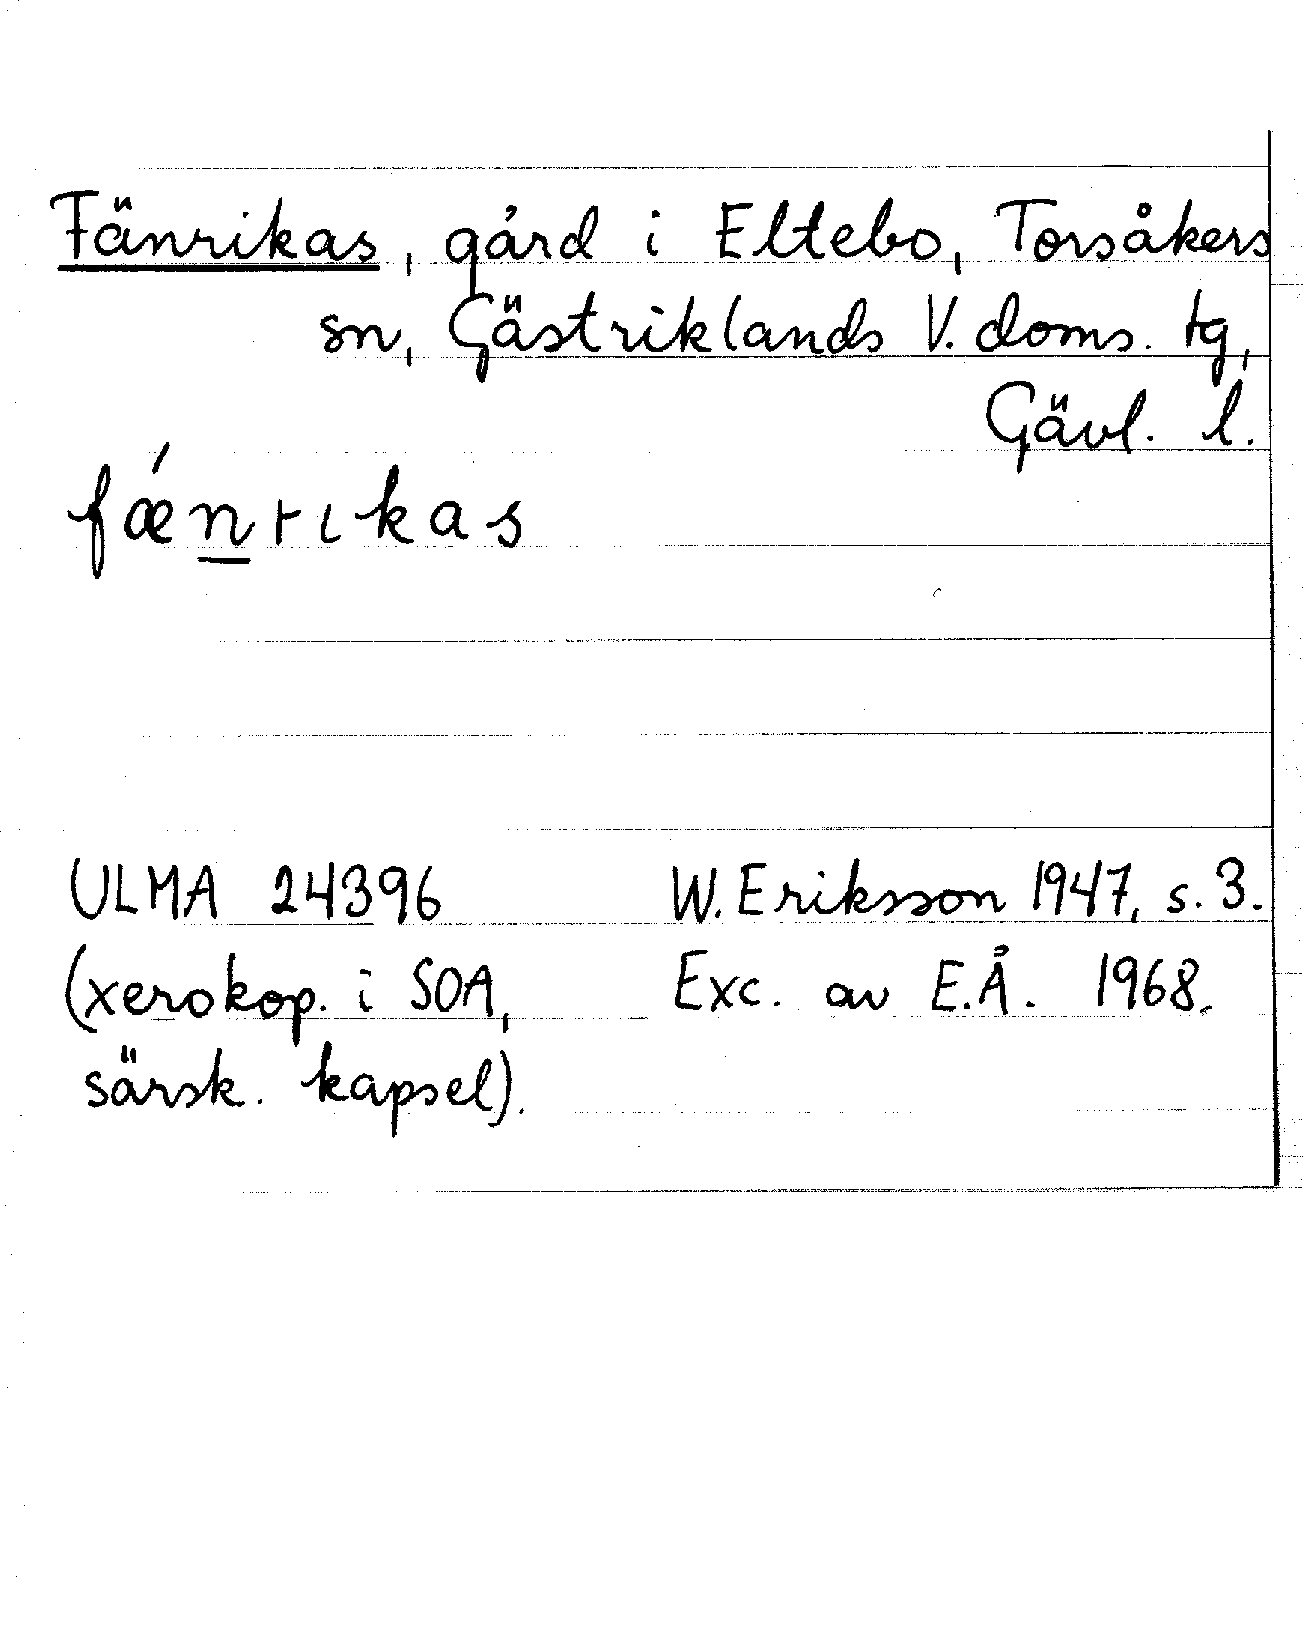 Fänrikas, gård i Eltebo, Torsåkers
sn, Gästriklands V. doms. tg,
Gävl. l.
fǽnrıkas
ULMA 24396 W. Eriksson 1947, s. 3.
(xerokop. i SOA, Exc. av E.Å. 1968.
särsk. kapsel).